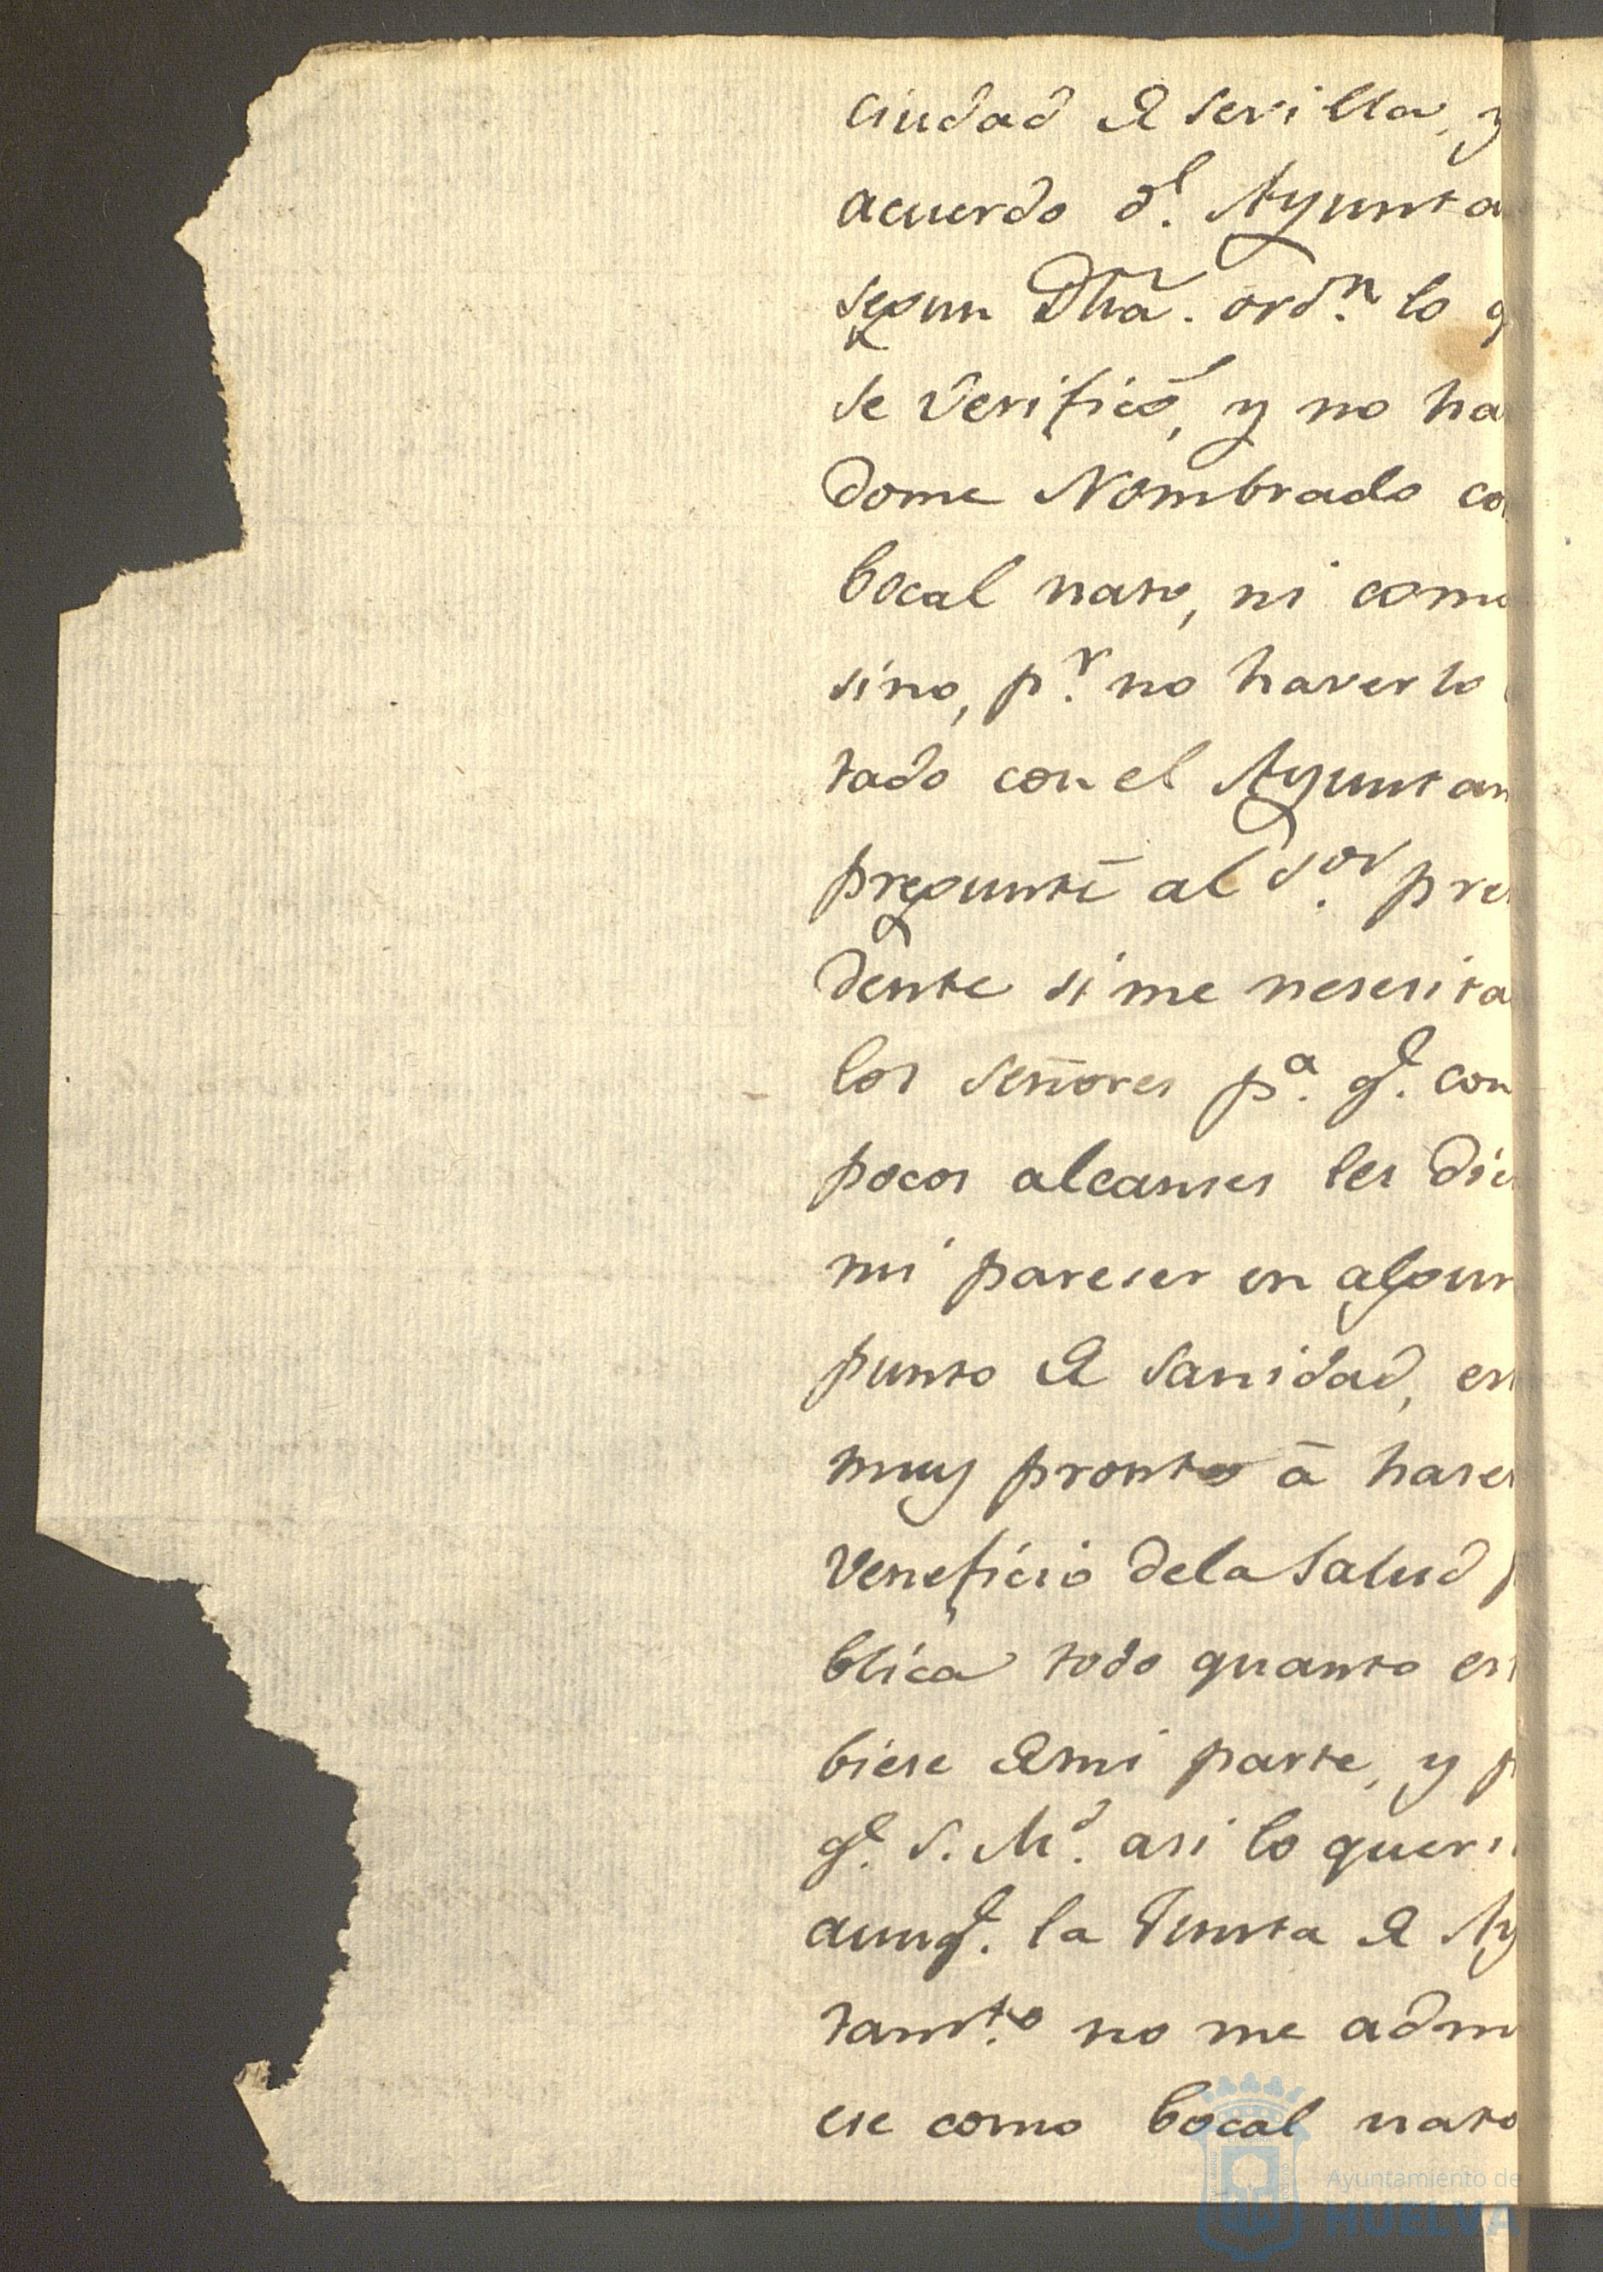 ciudad de Sevilla, y
acuerdo dl. Ayunta
segun Dha. ordn. lo q
se Verificó, y no ha
dome Nombrado co
bocal nato, ni como
sino, pr. no haverlo
tado con el Ayuntam
pregunté al Sor. pre
dente si me nesesita
los Señores pa. qe. con
pocos alcanses les die
mi pareser en algun
punto de Sanidad, es
muy pronto á haser
Veneficio dela Salud p
blica todo quanto es
biese de mi parte, y p
qe. S. Md. asi lo queri
aunqe. la Junta de Ay
tamto. no me adm
ese como bocal nato
Ayuntamiento de
HUELVA